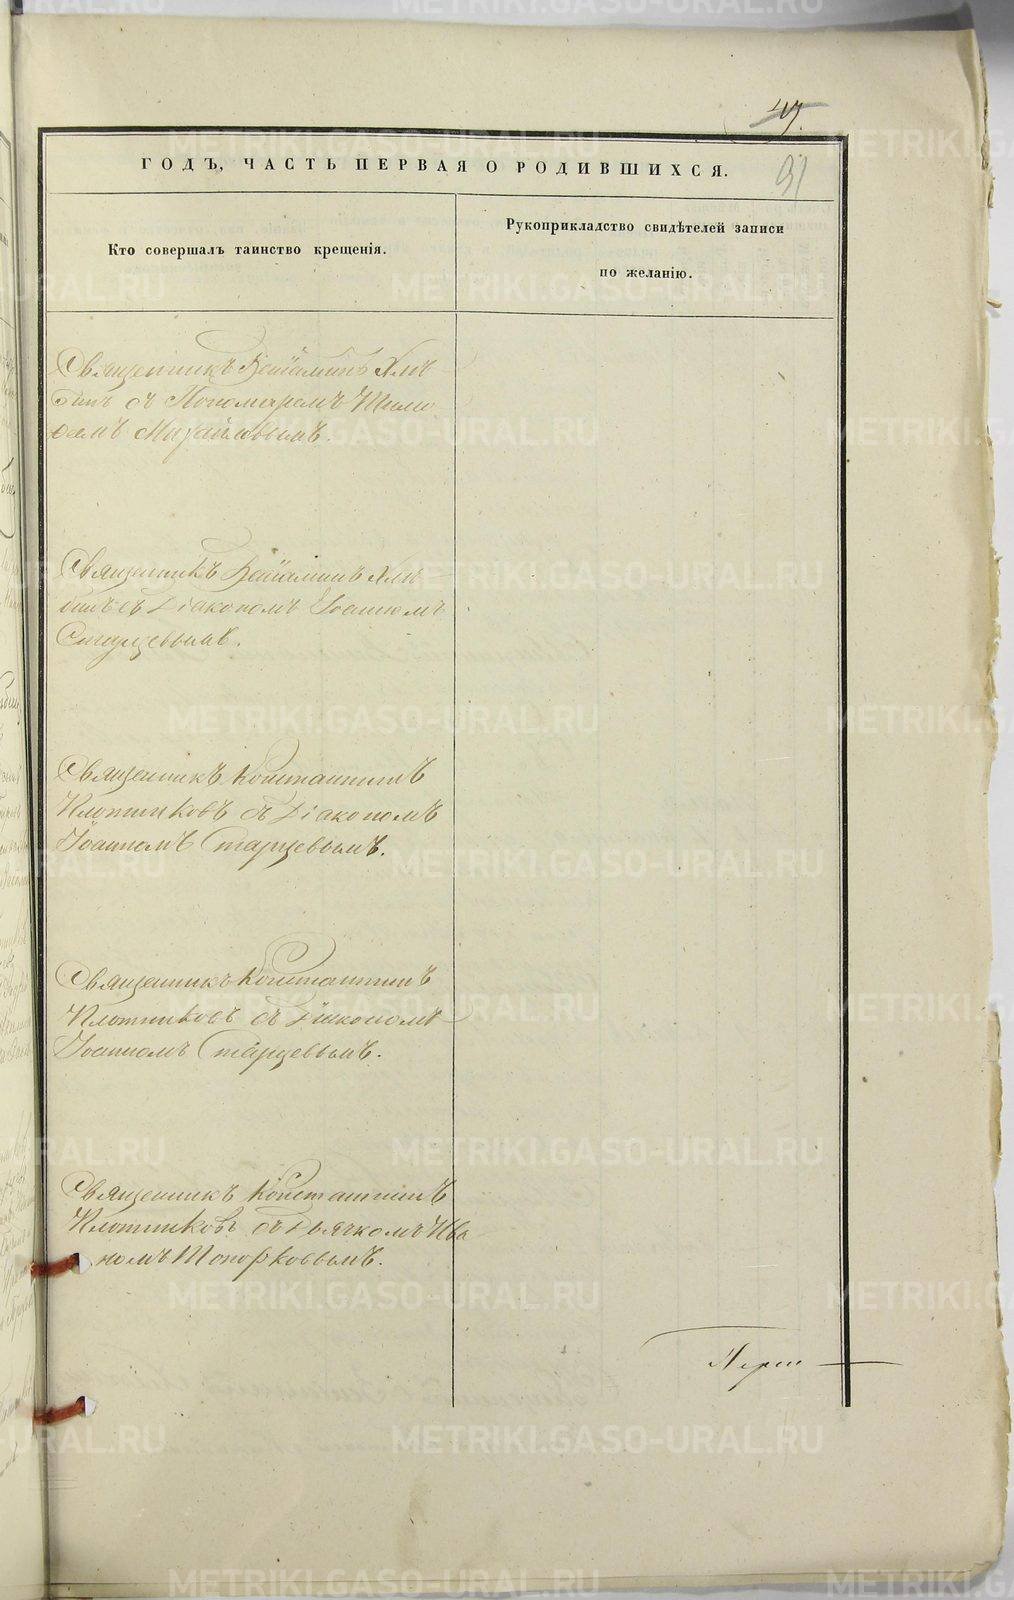 45.
91
ГОДЪ, ЧАСТЬ ПЕРВАЯ О РОДИВШИХСЯ.
Кто совершалъ таинство крещенія.
Рукоприкладство свидѣтелей записи
по желанію.
Священникъ Веніаминъ Хлѣ
бинъ съ Пономаремъ Тимо
феемъ Михайловымъ.
Священникъ Веніаминъ Хлѣ-
бинъ съ Діакономъ Іоанномъ
Старцевымъ.
Священникъ Константинъ
Плотниковъ съ Діакономъ
Іоанномъ Старцевымъ.
Священникъ Константинъ
Плотниковъ съ Діакономъ
Іоанномъ Старцевымъ.
Священникъ Константинъ
Плотниковъ съ Дьячкомъ Ива
номъ Топорковымъ.
METRIKI.GASO-URAL.RU